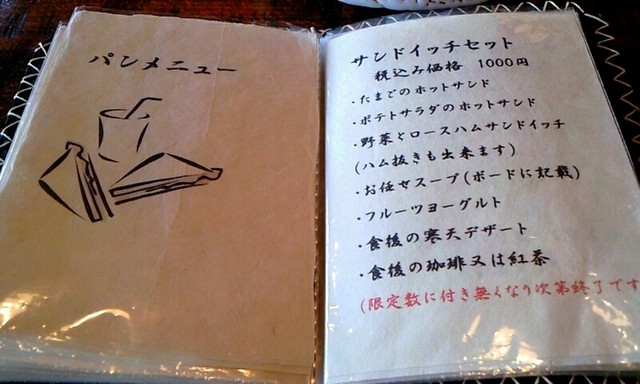 パンメニュー
サンドイッチセット
税込み価格 1000円
・たまごのホットサンド
・ポテトサラダのホットサンド
・野菜とロースハムサンドイッチ
(ハム抜きも出来ます)
・お任せスープ(ボードに記載)
・フルーツヨーグルト
・食後の寒天デザート
・食後の珈琲又は紅茶
(限定数に付き無くなり次第終了です